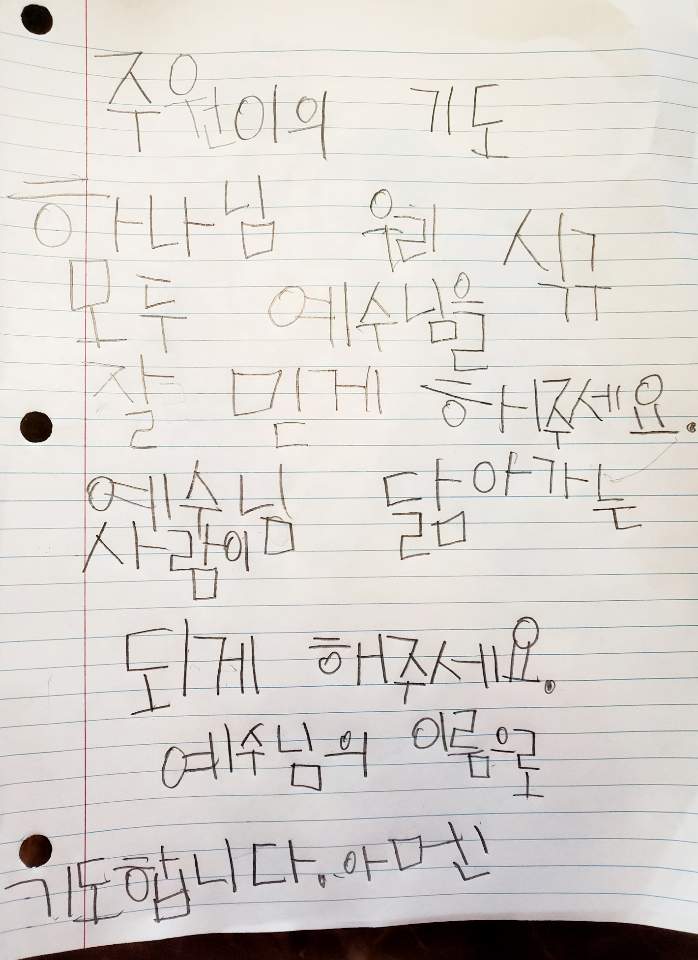 주원이의 기도
하나님 우리 식구
모두 예수님을
잘 믿게 해주세요.
예수님 닮아가는
사람이
되게 해주세요.
예수님의 이름으로
기도합니다.아멘